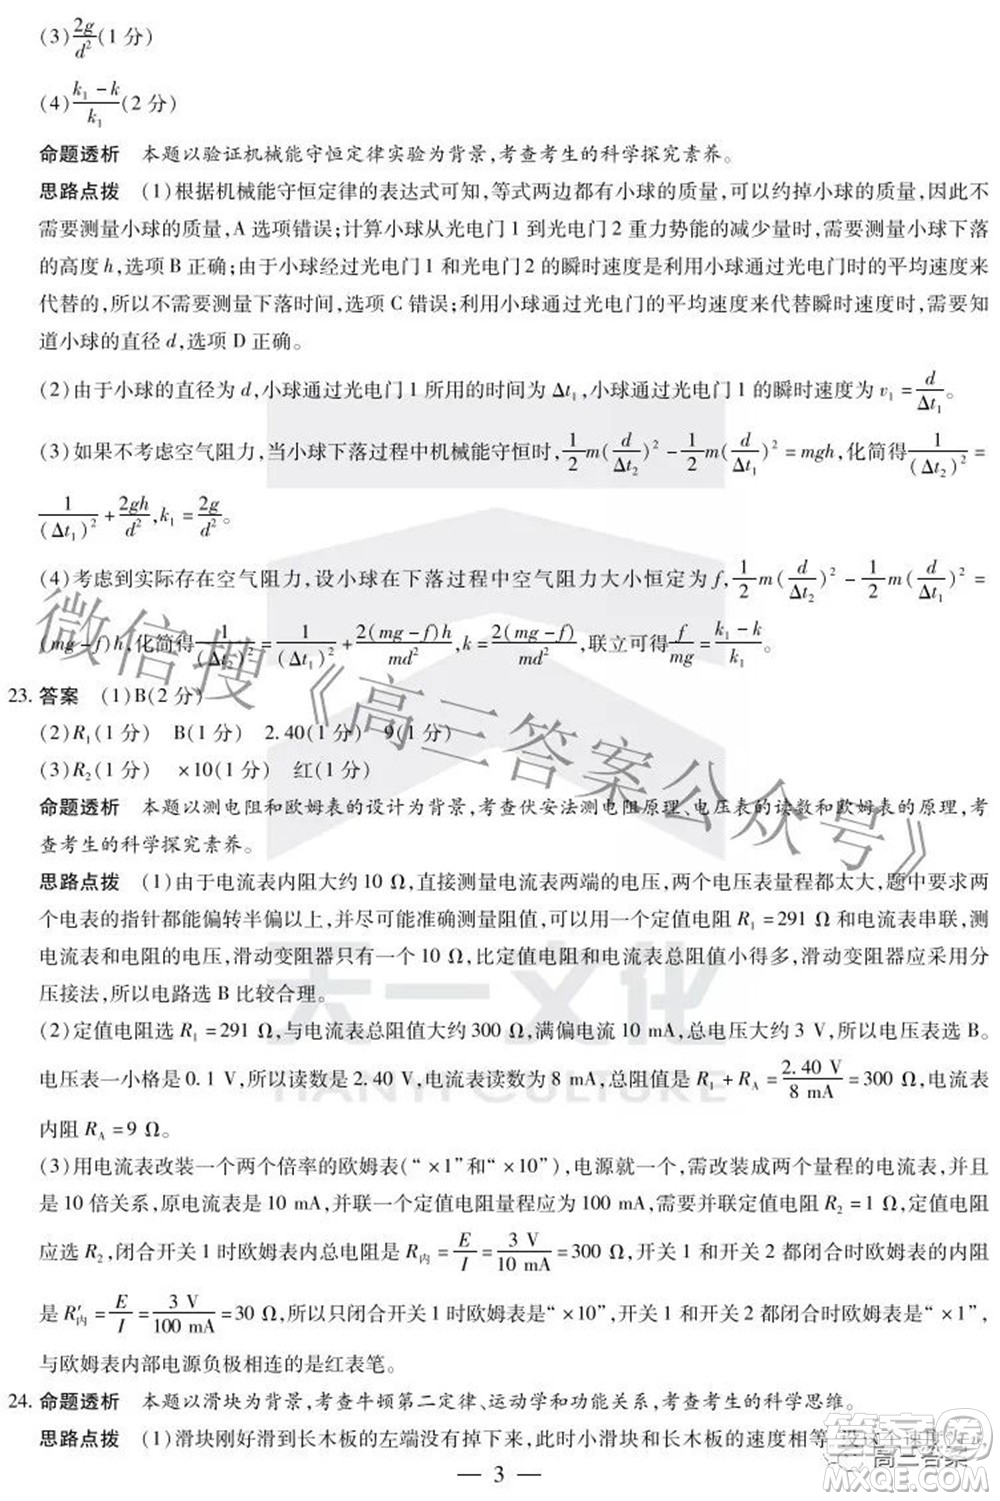 (3) $\frac{2g}{d^2}$ (1 分)
(4) $\frac{k_1-k}{k_1}$ (2 分)
命题透析 本题以验证机械能守恒定律实验为背景,考查考生的科学探究素养。
思路点拨 (1)根据机械能守恒定律的表达式可知,等式两边都有小球的质量,可以约掉小球的质量,因此不
需要测量小球的质量,A 选项错误;计算小球从光电门 1 到光电门 2 重力势能的减少量时,需要测量小球下落
的高度 h,选项 B 正确;由于小球经过光电门 1 和光电门 2 的瞬时速度是利用小球通过光电门时的平均速度来
代替的,所以不需要测量下落时间,选项 C 错误;利用小球通过光电门的平均速度来代替瞬时速度时,需要知
道小球的直径 d,选项 D 正确。
(2)由于小球的直径为 d,小球通过光电门 1 所用的时间为 Δt₁,小球通过光电门 1 的瞬时速度为 $v_1=\frac{d}{\Delta t_1}$。
(3)如果不考虑空气阻力,当小球下落过程中机械能守恒时,$\frac{1}{2}m(\frac{d}{\Delta t_2})^2-\frac{1}{2}m(\frac{d}{\Delta t_1})^2=mgh$,化简得$\frac{1}{(\Delta t_2)^2}=$
$\frac{1}{(\Delta t_1)^2}+\frac{2gh}{d^2}$,$k_1=\frac{2g}{d^2}$。
(4)考虑到实际存在空气阻力,设小球在下落过程中空气阻力大小恒定为 f,$\frac{1}{2}m(\frac{d}{\Delta t_2})^2-\frac{1}{2}m(\frac{d}{\Delta t_1})^2=$
$(mg-f)h$,化简得$\frac{1}{(\Delta t_2)^2}=\frac{1}{(\Delta t_1)^2}+\frac{2(mg-f)h}{md^2}$,$k=\frac{2(mg-f)}{md^2}$,联立可得$\frac{f}{mg}=\frac{k_1-k}{k_1}$。
23. 答案 (1)B(2 分)
(2)R₁(1 分) B(1 分) 2.40(1 分) 9(1 分)
(3)R₂(1 分) ×10(1 分) 红(1 分)
命题透析 本题以测电阻和欧姆表的设计为背景,考查伏安法测电阻原理、电压表的读数和欧姆表的原理,考
查考生的科学探究素养。
思路点拨 (1)由于电流表内阻大约 10 Ω,直接测量电流表两端的电压,两个电压表量程都太大,题中要求两
个电表的指针都能偏转半偏以上,并尽可能准确测量阻值,可以用一个定值电阻 R₁ = 291 Ω 和电流表串联,测
电流表和电阻的总阻值,滑动变阻器只有 10 Ω,比定值电阻和电流表总阻值小得多,滑动变阻器应采用分
压接法,所以电路选 B 比较合理。
(2)定值电阻选 R₁ = 291 Ω,与电流表总阻值大约 300 Ω,满偏电流 10 mA,总电压大约 3 V,所以电压表选 B。
电压表一小格是 0.1 V,所以读数是 2.40 V,电流表读数为 8 mA,总阻值是 $R_1+R_A=\frac{2.40\ V}{8\ mA}=300\ Ω$,电流表
内阻 $R_A$ = 9 Ω。
(3)用电流表改装一个两个倍率的欧姆表(“×1”和“×10”),电源就一个,需要改装成两个量程的电流表,并且
是 10 倍关系,原电流表是 10 mA,并联一个定值电阻量程应为 100 mA,需要并联定值电阻 R₂ = 1 Ω,定值电阻
应选 R₂,闭合开关 1 时欧姆表内总电阻是 $R_内=\frac{E}{I}=\frac{3\ V}{10\ mA}=300\ Ω$,开关 1 和开关 2 都闭合时欧姆表的内阻
是 $R'_内=\frac{E}{I}=\frac{3\ V}{100\ mA}=30\ Ω$,所以只闭合开关 1 时欧姆表是“×10”,开关 1 和开关 2 都闭合时欧姆表是“×1”,
与欧姆表内部电源负极相连的是红表笔。
24. 命题透析 本题以滑块为背景,考查牛顿第二定律、运动学和功能关系,考查考生的科学思维。
思路点拨 (1)滑块刚好滑到长木板的左端没有掉下来,此时小滑块和长木板的速度相等,设这个速度为
— 3 —
微信搜《高三答案公众号》
天一文化
TIANYI CULTURE
答案圈
高三答案
MXQE.COM